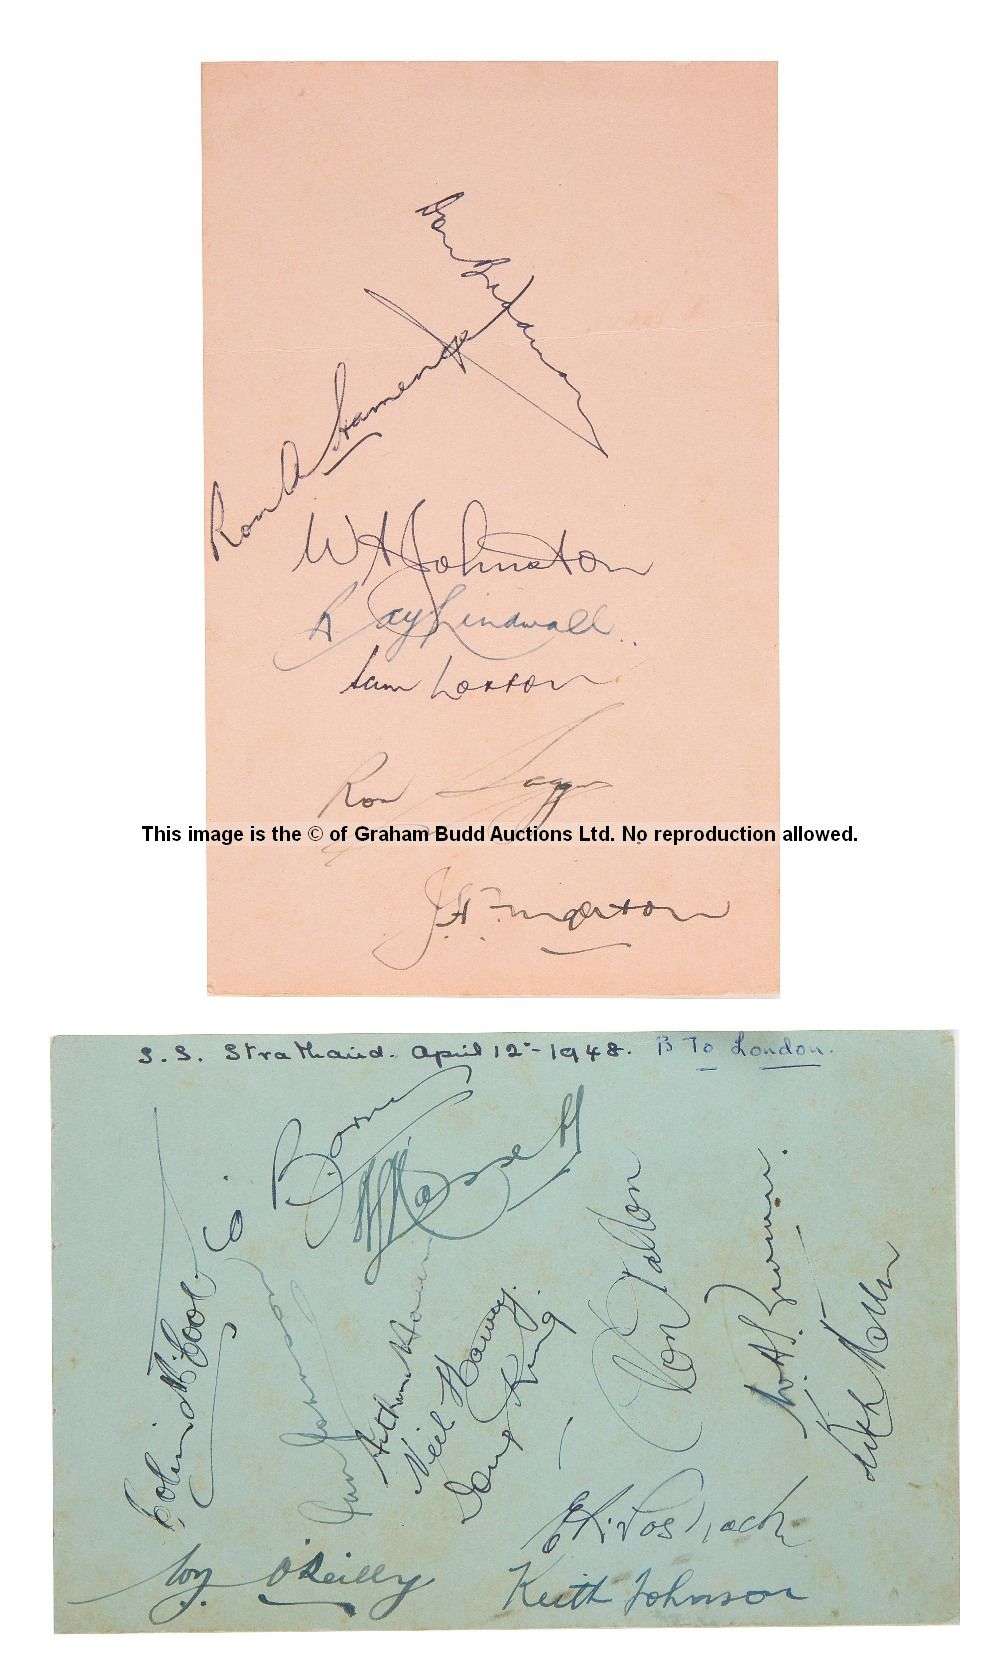 Don Bradman
Ron A Hamence
W A Johnston
Ray Lindwall
Sam Loxton
Ron Saggers
This image is the © of Graham Budd Auctions Ltd. No reproduction allowed.
J. H. Fingleton
S. S. Strathaird. April 12" - 1948. B To London.
Colin McCool
S. G. Barnes
A L Hassett
Ian Johnson
Arthur Morris
Neil Harvey.
Doug Ring
Don Tallon
W. A. Brown.
Keith Miller
E. R. H. Toshack
W. J. O'Reilly
Keith Johnson